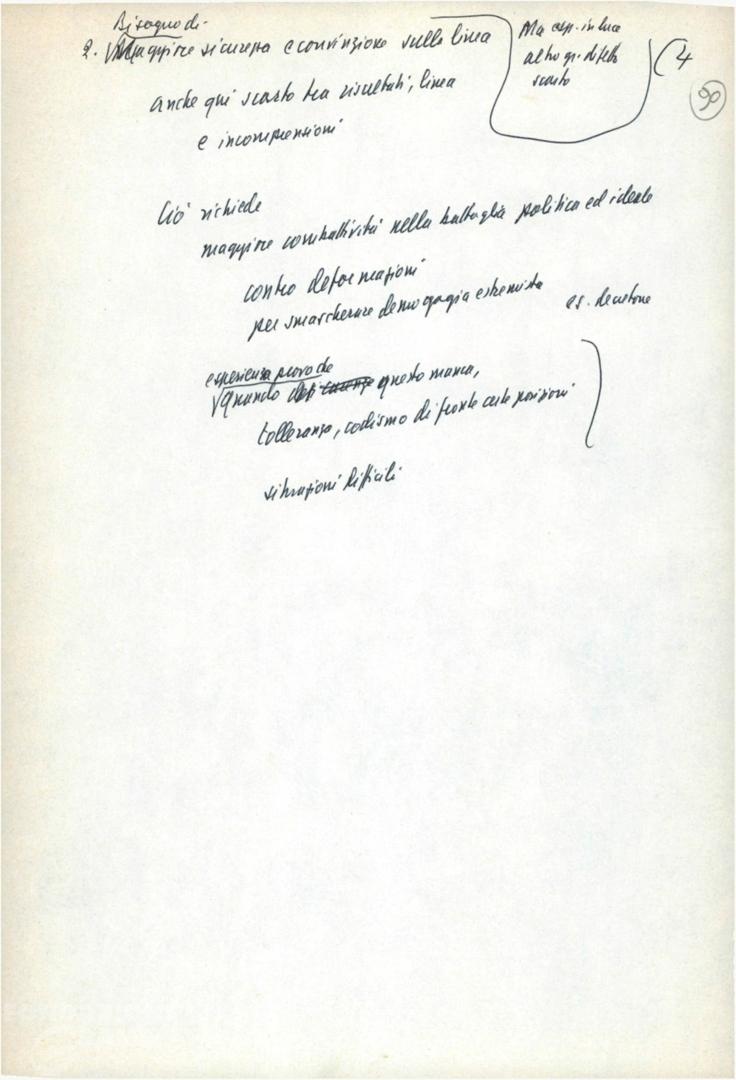 Bisogno di
2. Maggiore sicurezza e convinzione sulla linea
Ma esp. in luce
altro
scarto
(4
90
anche qui scarto tra risultati, linea
e incomprensioni
Ciò richiede
maggiore combattività nella battaglia politica ed ideale
contro deformazioni
per smascherare demagogia estremista
es. decretone
esperienza prova che
Quando questo manca,
tolleranza, codismo di fronte certe posizioni
situazioni difficili